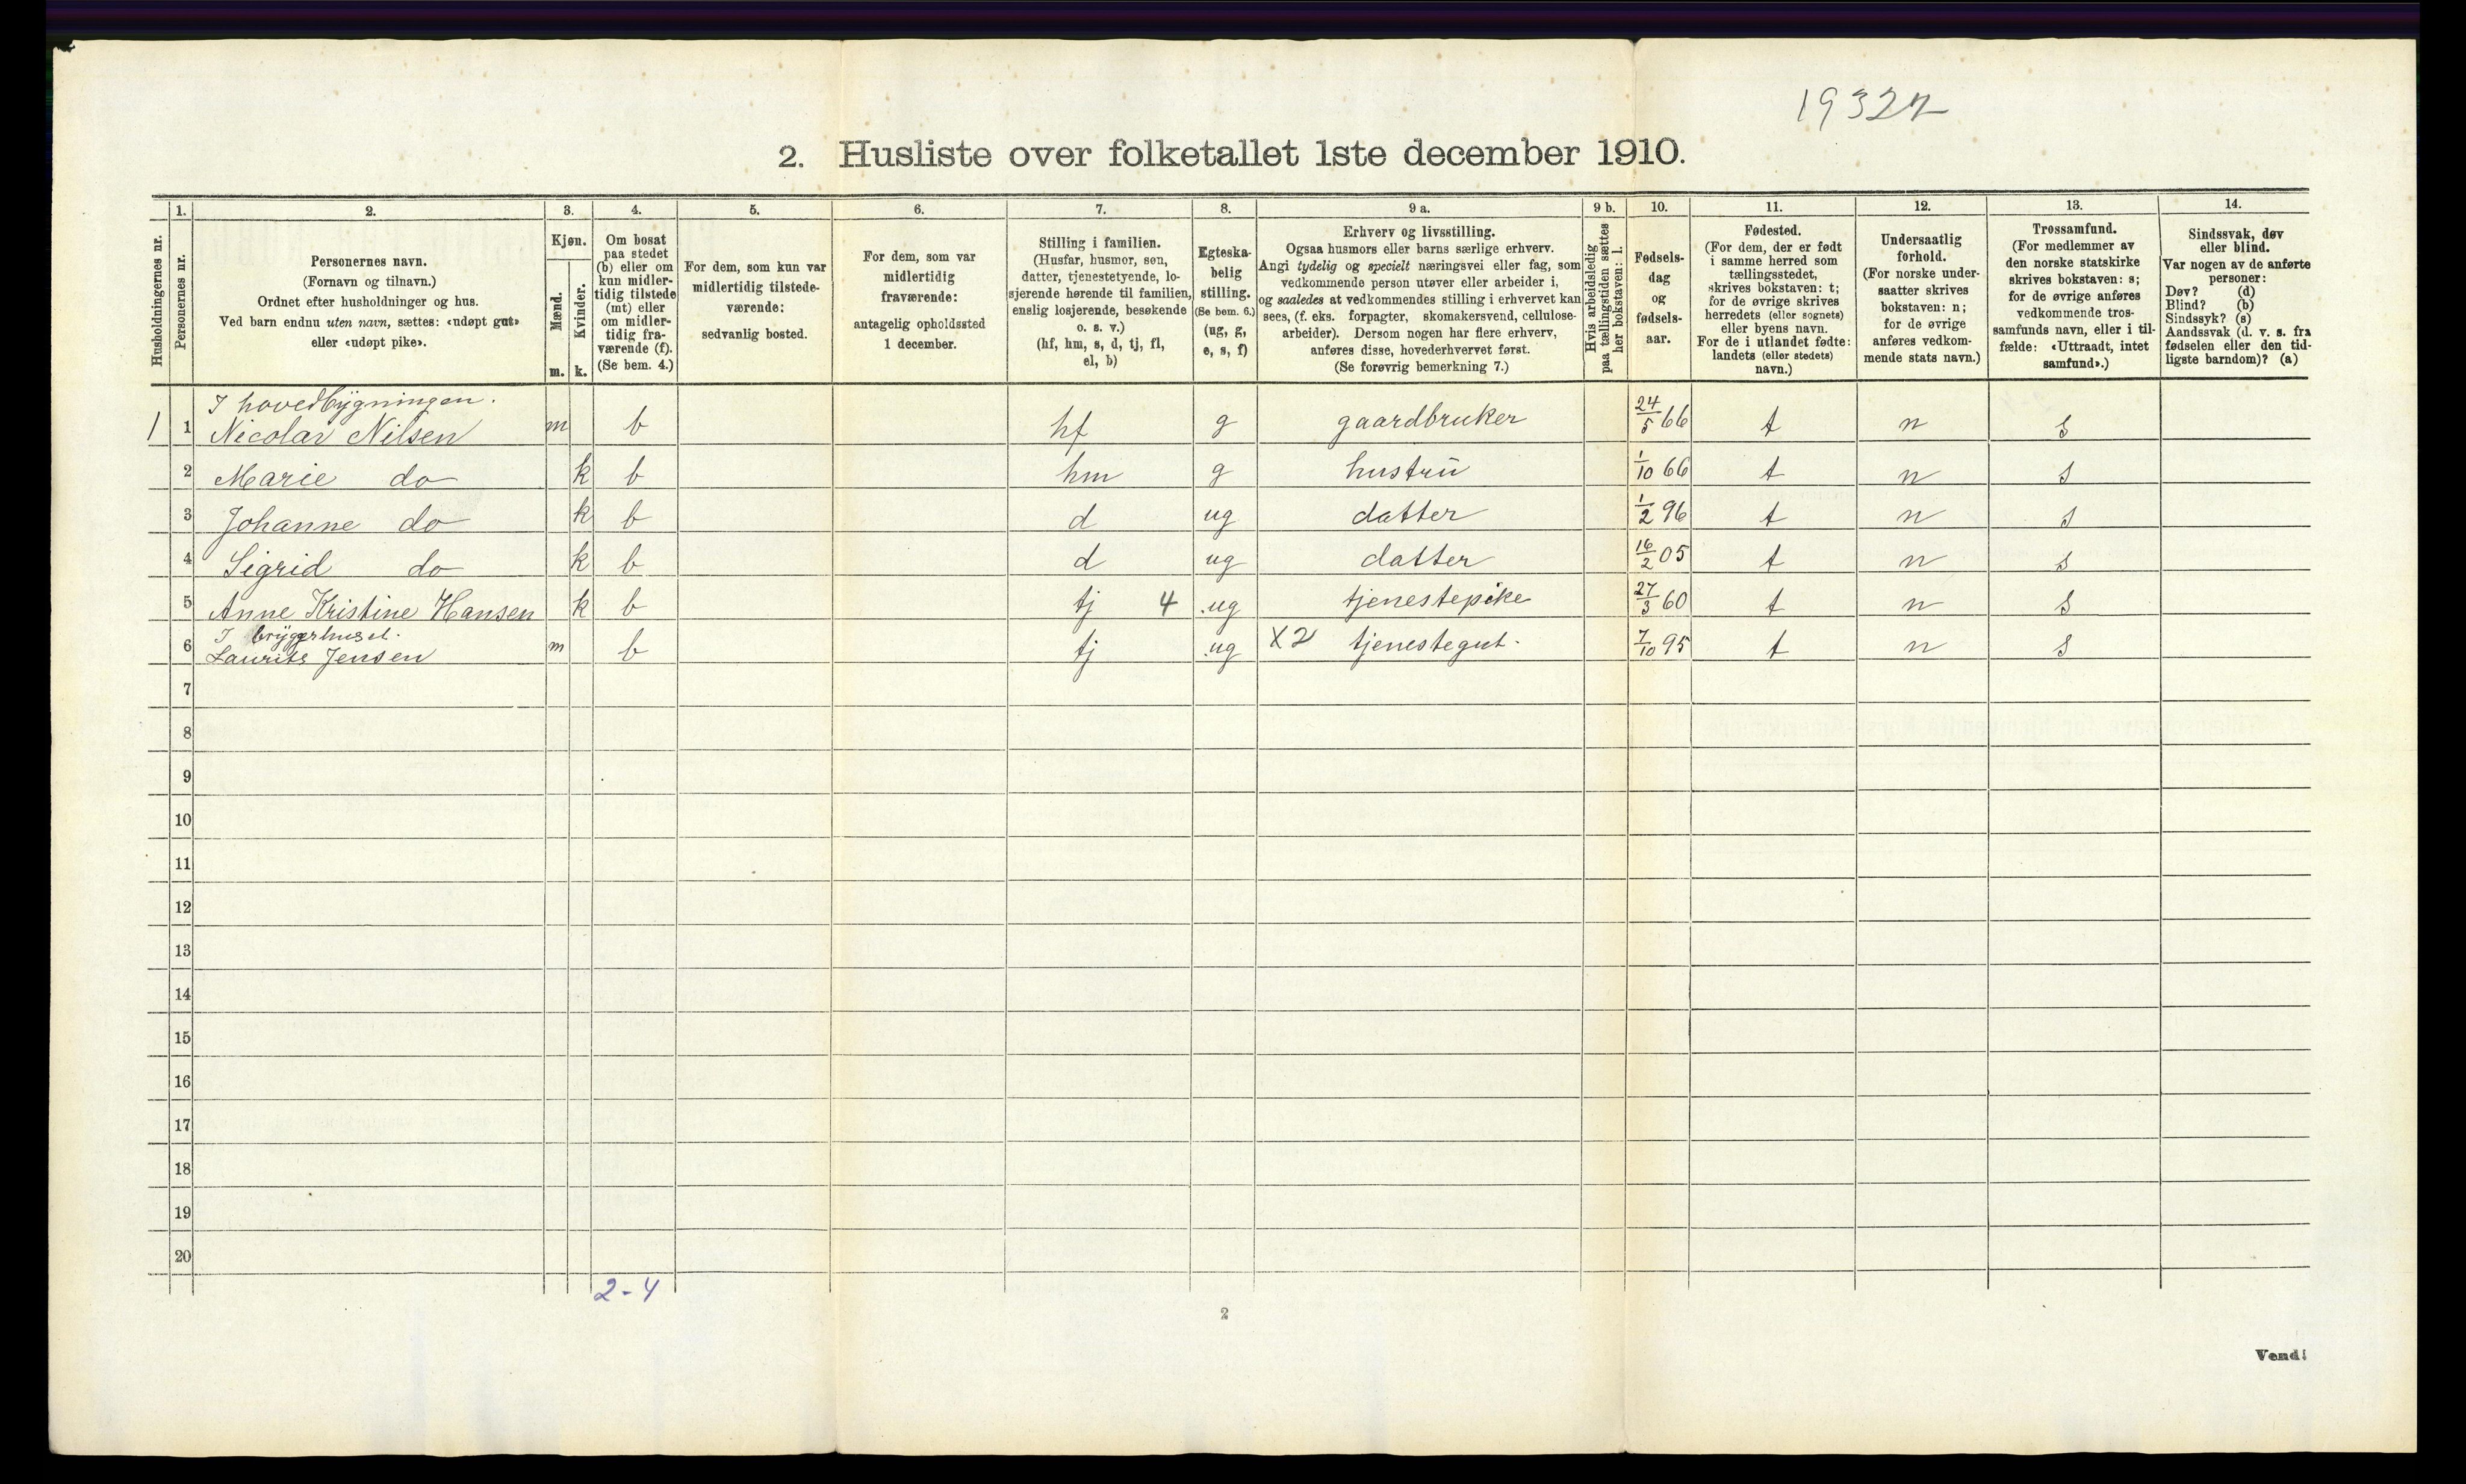 19322
2. Husliste over folketallet 1ste december 1910.
Husholdningernes nr.
1.
Personernes nr.
2.
Personernes navn.
(Fornavn og tilnavn.)
Ordnet efter husholdninger og hus.
Ved barn endnu uten navn, sættes: «udøpt gut»
eller «udøpt pike».
3.
Kjøn.
Mænd.
Kvinder.
m. k.
4.
Om bosat
paa stedet
(b) eller om
kun midler-
tidig tilstede
(mt) eller
om midler-
tidig fra-
værende (f).
(Se bem. 4.)
5.
For dem, som kun var
midlertidig tilstede-
værende:
sedvanlig bosted.
6.
For dem, som var
midlertidig
fraværende:
antagelig opholdssted
1 december.
7.
Stilling i familien.
(Husfar, husmor, søn,
datter, tjenestetyende, lo-
sjerende hørende til familien,
enslig losjerende, besøkende
o. s. v.)
(hf, hm, s, d, tj, fl,
el, b)
8.
Egteska-
belig
stilling.
(Se bem. 6.)
(ug, g,
e, s, f)
9 a.
Erhverv og livsstilling.
Ogsaa husmors eller barns særlige erhverv.
Angi tydelig og specielt næringsvei eller fag, som
vedkommende person utøver eller arbeider i,
og saaledes at vedkommendes stilling i erhvervet kan
sees, (f. eks. forpagter, skomakersvend, cellulose-
arbeider). Dersom nogen har flere erhverv,
anføres disse, hovederhvervet først.
(Se forøvrig bemerkning 7.)
9 b.
Hvis arbeidsledig
paa tællingstiden sættes
her bokstaven: l.
10.
Fødsels-
dag
og
fødsels-
aar.
11.
Fødested.
(For dem, der er født
i samme herred som
tællingsstedet,
skrives bokstaven: t;
for de øvrige skrives
herredets (eller sognets)
eller byens navn.
For de i utlandet fødte:
landets (eller stedets)
navn.)
12.
Undersaatlig
forhold.
(For norske under-
saatter skrives
bokstaven: n;
for de øvrige
anføres vedkom-
mende stats navn.)
13.
Trossamfund.
(For medlemmer av
den norske statskirke
skrives bokstaven: s;
for de øvrige anføres
vedkommende tros-
samfunds navn, eller i til-
fælde: «Uttraadt, intet
samfund».)
14.
Sindssvak, døv
eller blind.
Var nogen av de anførte
personer:
Døv? (d)
Blind? (b)
Sindssyk? (s)
Aandssvak (d. v. s. fra
fødselen eller den tid-
ligste barndom)? (a)
I hovedbygningen.
1 1 Nicolai Nilsen m b hf g gaardbruker 24/5 66 t n s
2 Marie do k b hm g hustru 1/10 66 t n s
3 Johanne do k b d ug datter 1/2 96 t n s
4 Sigrid do k b d ug datter 16/2 05 t n s
5 Anne Kristine Hansen k b tj 4 ug tjenestepike 27/3 60 t n s
I bryggerhuset.
6 Laurits Jensen m b tj ug X2 tjenestegut. 7/10 95 t n s
7
8
9
10
11
12
13
14
15
16
17
18
19
20
2-4
2
Vend!